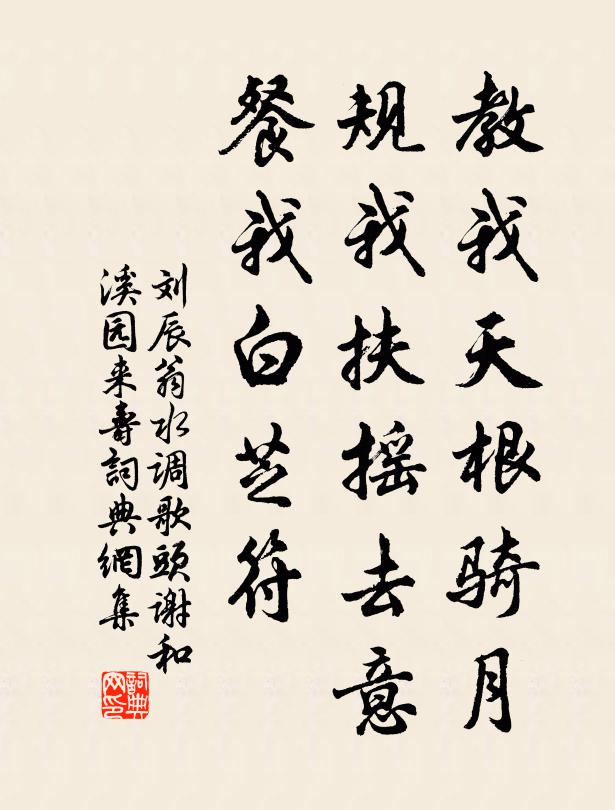 教我天根骑月
规我扶摇去意
餐我白芝符
刘辰翁水调歌頭谢和
溪园来壽詞典網集
詞典
网印